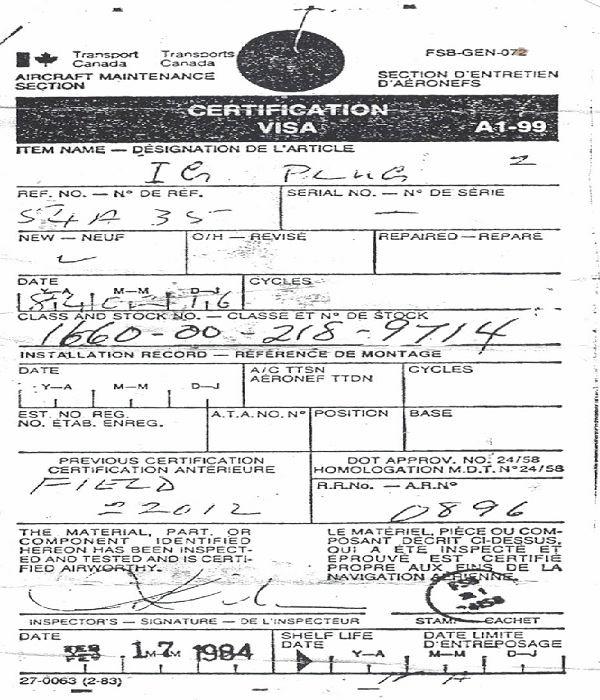 Transport Canada Transports Canada
FSB-GEN-072
AIRCRAFT MAINTENANCE SECTION
SECTION D'ENTRETIEN D'AÉRONEFS
CERTIFICATION
VISA A1-99
ITEM NAME — DÉSIGNATION DE L'ARTICLE
IG PLUG 2
REF. NO. — N° DE RÉF. SERIAL NO. — N° DE SÉRIE
S4A 35 —
NEW — NEUF O/H — REVISÉ REPAIRED — RÉPARÉ
DATE CYCLES
Y—A M—M D—J
CLASS AND STOCK NO. — CLASSE ET N° DE STOCK
1660-00-218-9714
INSTALLATION RECORD — RÉFÉRENCE DE MONTAGE
DATE A/C TTSN AÉRONEF TTDN CYCLES
Y—A M—M D—J
EST. NO REG. NO. ÉTAB. ENREG. A.T.A. NO. N° POSITION BASE
PREVIOUS CERTIFICATION DOT APPROV. NO. 24/58
CERTIFICATION ANTÉRIEURE HOMOLOGATION M.D.T. N° 24/58
FIELD R.R.No. — A.R.N°
22012 0896
THE MATERIAL, PART, OR
COMPONENT IDENTIFIED
HEREON HAS BEEN INSPECT-
ED AND TESTED AND IS CERTI-
FIED AIRWORTHY.
LE MATÉRIEL, PIÈCE OU COM-
POSANT DÉCRIT CI-DESSUS,
QUI A ÉTÉ INSPECTÉ ET
ÉPROUVÉ EST CERTIFIÉ
PROPRE AUX FINS DE LA
NAVIGATION AÉRIENNE.
INSPECTOR'S — SIGNATURE — DE L'INSPECTEUR STAMP — CACHET
DATE SHELF LIFE DATE DATE LIMITE D'ENTREPOSAGE
FEB 17 1984 Y—A M—M D—J
27-0063 (2-83)